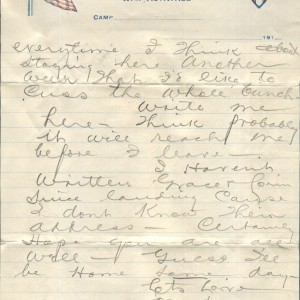 CAMP
191
everytime I think about
staying here another
week that I'd like to
cuss the whole bunch
Write me
here - think probably
it will reach me
before I leave.
I havent
written Grace &
since landing cause
I dont know their
address - Certainly
Hope you are all
well - Guess I'll
be Home some day
Lots Love